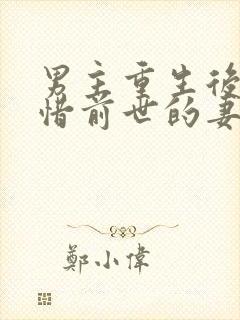 男主重生後
惜前世的妻
鄭小偉